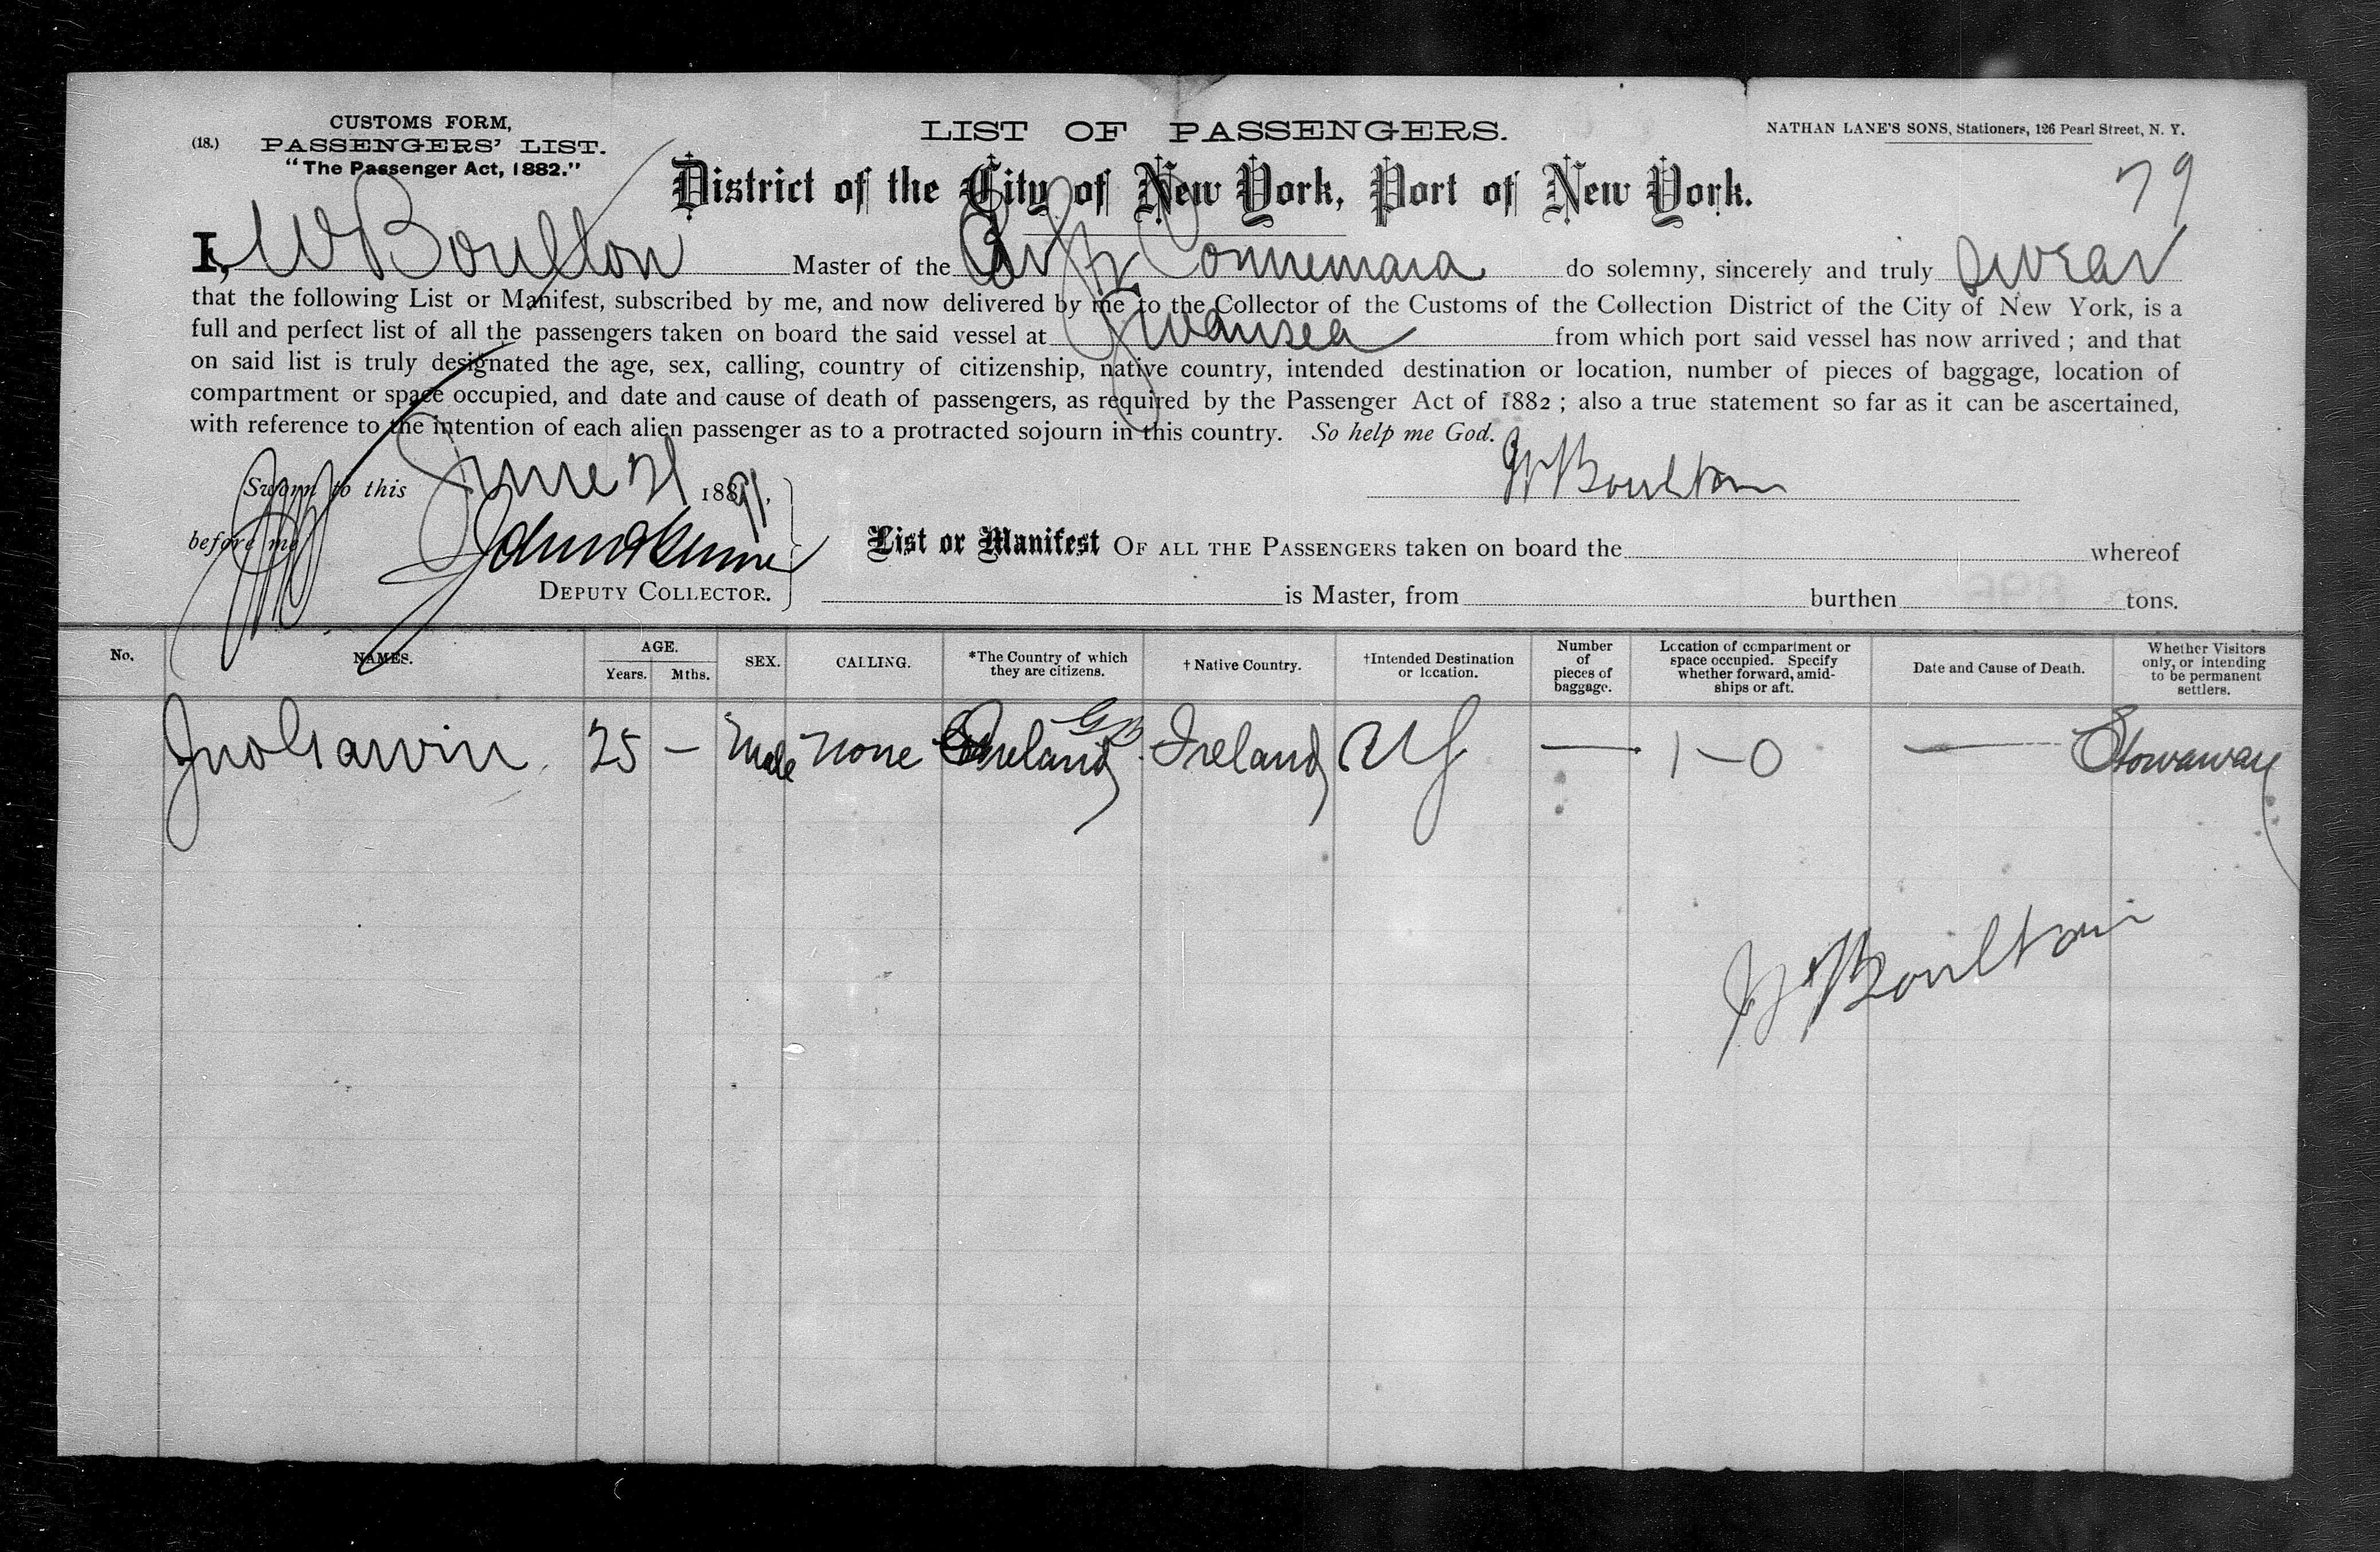 (18.)
CUSTOMS FORM,
PASSENGERS' LIST.
"The Passenger Act, 1882."
LIST OF PASSENGERS.
NATHAN LANE'S SONS, Stationers, 126 Pearl Street, N. Y.
79
District of the City of New York, Port of New York.
I, W Boulton Master of the Connemara do solemny, sincerely and truly swear
that the following List or Manifest, subscribed by me, and now delivered by me to the Collector of the Customs of the Collection District of the City of New York, is a
full and perfect list of all the passengers taken on board the said vessel at Swansea from which port said vessel has now arrived ; and that
on said list is truly designated the age, sex, calling, country of citizenship, native country, intended destination or location, number of pieces of baggage, location of
compartment or space occupied, and date and cause of death of passengers, as required by the Passenger Act of 1882 ; also a true statement so far as it can be ascertained,
with reference to the intention of each alien passenger as to a protracted sojourn in this country. So help me God.
W Boulton
Sworn to this June 21 1891.
before me
DEPUTY COLLECTOR.
List or Manifest OF ALL THE PASSENGERS taken on board the whereof
is Master, from burthen tons.
No. NAMES. AGE. Years. Mths. SEX. CALLING. *The Country of which they are citizens. † Native Country. †Intended Destination or location. Number of pieces of baggage. Location of compartment or space occupied. Specify whether forward, amid-ships or aft. Date and Cause of Death. Whether Visitors only, or intending to be permanent settlers.
Jno Garvin 25 — Male none Ireland GB Ireland NY — 1-0 — Stowaway
W Boulton